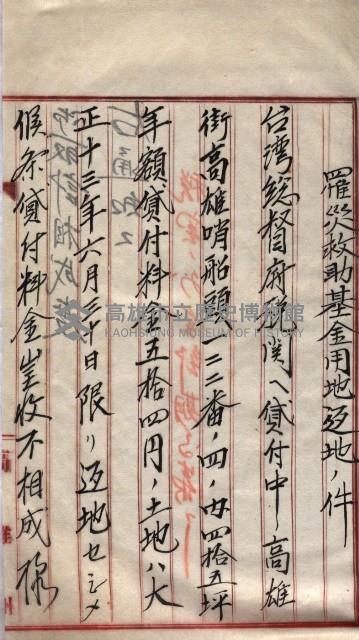 罹災救助基金用地返地ノ件
台湾総督府税関ヘ貸付中ノ高雄
街高雄哨船頭一二三番ノ四ノ内四拾五坪
年額貸付料金五拾四円ノ土地ハ大
正十三年六月三十日限リ返地セシメ
候条貸付料金豈收不相成様
高雄市立歷史博物館
KAOHSIUNG MUSEUM OF HISTORY